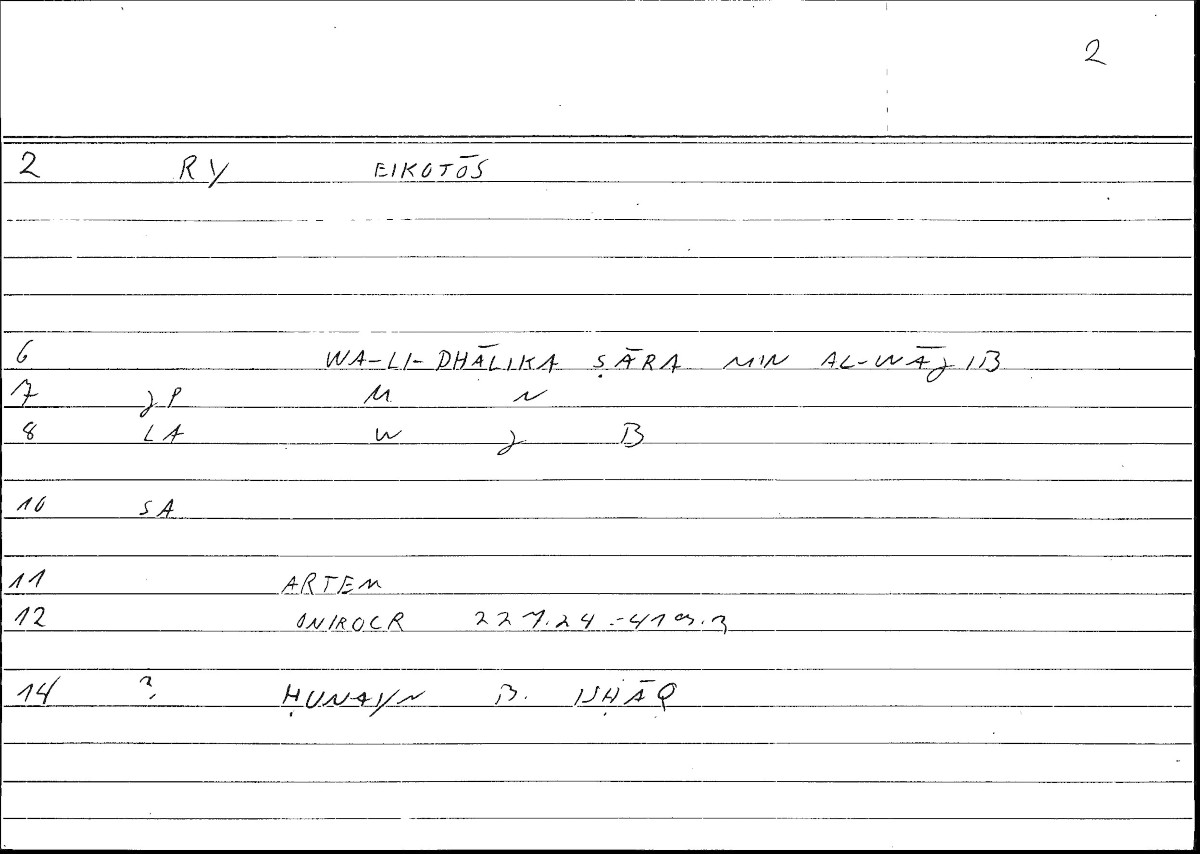 2
2 RY EIKOTŌS
6 WA-LI-DHĀLIKA ṢĀRA MIN AL-WĀJIB
7 JP M N
8 LA W J B
10 SA
11 ARTEM
12 ONIROCR 227.24-419.3
14 ? ḤUNAYN B. ISḤĀQ